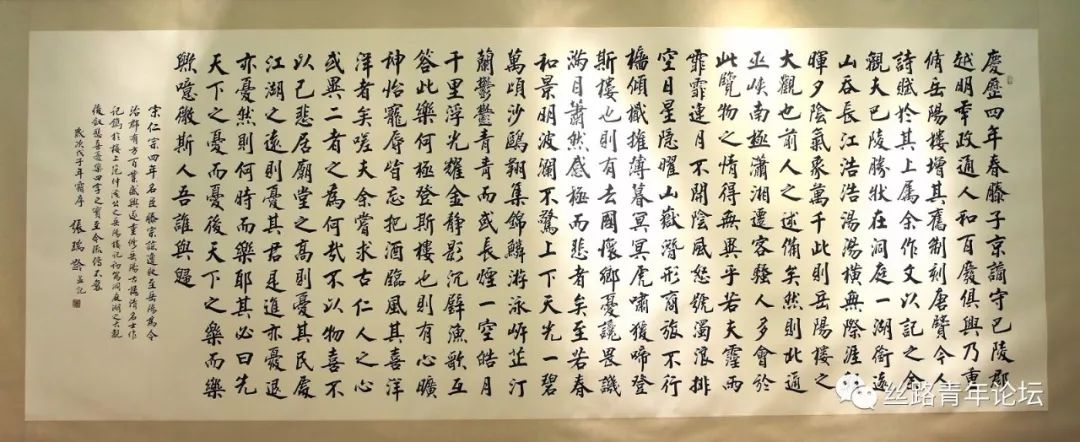 慶歷四年春滕子京謫守巴陵郡
越明年政通人和百廢俱興乃重
脩岳陽樓增其舊制刻唐賢今人
詩賦於其上属余作文以記之余
觀夫巴陵勝狀在洞庭一湖銜遠
山吞長江浩浩湯湯橫無際涯
暉夕陰氣象萬千此則岳陽樓之
大觀也前人之述備矣然則北通
巫峽南極瀟湘遷客騷人多會於
此覽物之情得無異乎若夫霪雨
霏霏連月不開陰風怒號濁浪排
空日星隱曜山嶽潛形商旅不行
檣傾檝摧薄暮冥冥虎嘯猨啼登
斯樓也則有去國懷鄉憂讒畏譏
滿目蕭然感極而悲者矣至若春
和景明波瀾不驚上下天光一碧
萬頃沙鷗翔集錦鱗游泳岍芷汀
蘭鬱鬱青青而或長煙一空皓月
千里浮光耀金靜影沉璧漁歌互
答此樂何極登斯樓也則有心曠
神怡寵辱皆忘把酒臨風其喜洋
洋者矣嗟夫余嘗求古仁人之心
或異二者之為何哉不以物喜不
以己悲居廟堂之高則憂其民處
江湖之遠則憂其君是進亦憂退
亦憂然則何時而樂耶其必曰先
天下之憂而憂後天下之樂而樂
歟噫微斯人吾誰與歸
宋仁宗四年名臣滕宗諒至岳陽為令
治郡有方百業盛興遂重修岳陽古樓請名士作
記鐫於樓上范仲淹公之岳陽樓記初寫洞庭湖之大觀
後叙悲喜憂樂四字之實至今流傳不衰
歲次戊子年 張瑞齡並記
丝路青年论坛